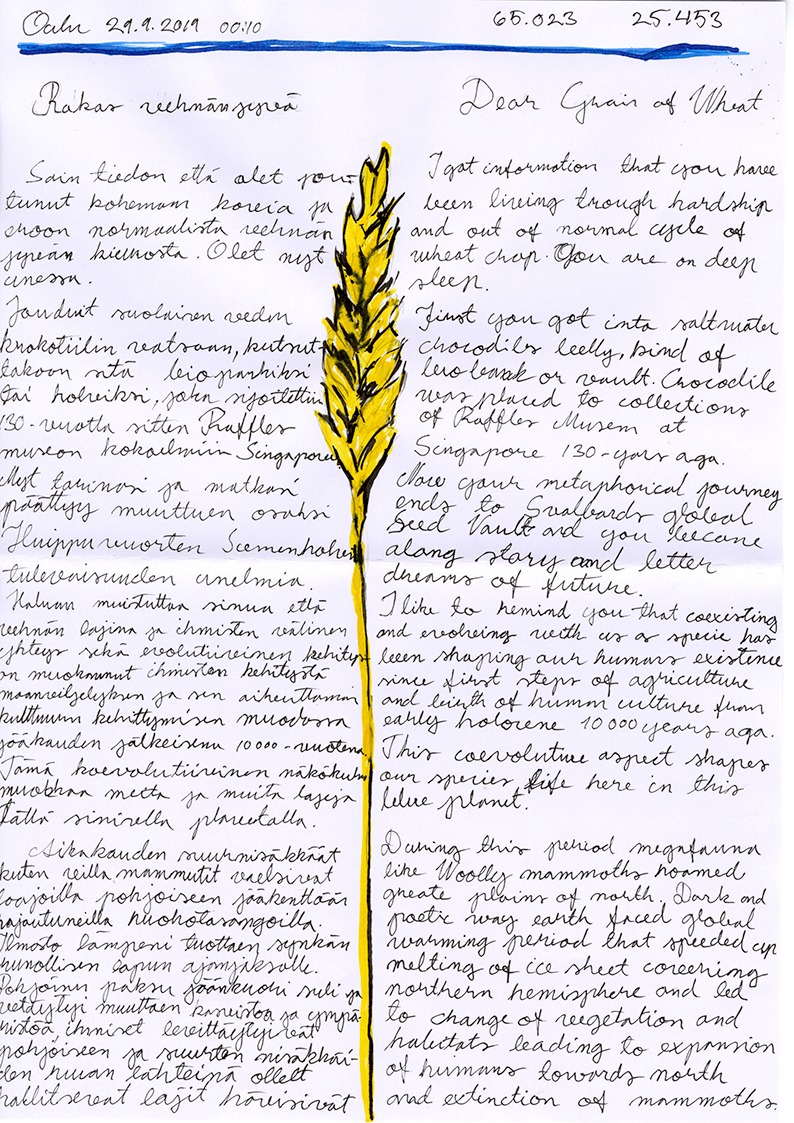 Oulu 29.9.2019 00:10 65.023 25.453
Rakas vehnänjyvä
Sain tiedon että olet jou-
tunut kokemaan kovia ja
eroon normaalista vehnän
jyvän kierrosta. Olet nyt
unessa.
Jouduit suolaisen veden
krokotiilin vatsaan, kutsut-
takoon sitä biopankiksi
tai holviksi, joka sijoitettiin
130-vuotta sitten Raffles
museon kokoelmiin Singapore
Nyt tarinasi ja matkasi
päättyy muuttuen osaksi
Huippuvuorten Siemenholvin
tulevaisuuden unelmia.
Haluan muistuttaa sinua että
vehnän lajina ja ihmisten välinen
yhteys sekä evolutiivinen kehitys
on muokannut ihmisten kehitystä
maanviljelyksen ja sen aiheuttaman
kulttuurin kehittymisen muodossa
jääkauden jälkeisenä 10 000-vuotena.
Tämä koevolutiivinen näkökulma
muokkaa meitä ja muita lajeja
tällä sinisellä planeetalla.
Aikakauden suurnisäkkäät
kuten villamammutit vaelsivat
laajoilla pohjoiseen jääkenttään
rajoituneilla ruohotasangoilla.
Ilmasto lämpeni tuottaen synkän
runollisen lopun ajanjaksolle.
Pohjoinen paksu jäänkuori suli ja
vetäytyi muuttaen kasvistoa ja ympä-
ristöä, ihmiset levittäytyivät
pohjoiseen ja suurten nisäkkäi-
den ruuan lähteinä olleet
hallitsevat lajit hävisivät
Dear Grain of Wheat
I got information that you have
been living trough hardship
and out of normal cycle of
wheat chop. You are on deep
sleep.
First you got into saltwater
crocodiles belly, kind of
biobank or vault. Crocodile
was placed to collections
of Raffles Musem at
Singapore 130-yars ago.
Now your metaphorical journey
ends to Svalbards global
Seed Vault and you become
along story and letter
dreams of future.
I like to remind you that coexisting
and evolving with us as specie has
been shaping our humans existence
since first steps of agriculture
and birth of human culture from
early holocene 10 000 years ago.
This coevolutive aspect shapes
our species life here in this
blue planet.
During this period megafauna
like Woolly mammoths roamed
greate plains of north. Dark and
poetic way earth faced global
warming period that speeded up
melting of ice sheet covering
northern hemisphere and led
to change of vegetation and
habitats leading to expansion
of humans towards north
and extinction of mammoths.